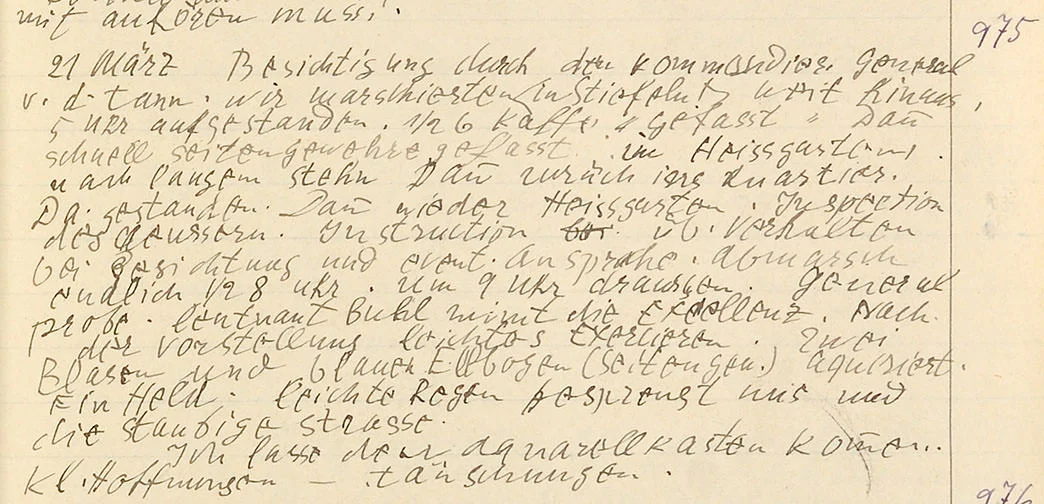 mit anhören muss!
975
21 März Besichtigung durch den kommandier. General
v. d. Tann. wir marschierten (in Stiefeln!) weit hinaus,
5 Uhr aufgestanden. 1/2 6 Kaffe „gefasst" Dañ
schnell seitengewehre gefasst. im Heissgarten
nach langem stehn Dañ zurück ins Quartier.
Da gestanden. Dañ wieder Heissgarten. Inspection
des äeussern. Instruction üb. Verhalten
bei Besichtung und event. Ansprache. Abmarsch
endlich 1/2 8 Uhr. um 9 Uhr draussen. General
probe. Leutnant Buhl mimt die Exellenz. Nach
der Vorstellung leichtes Exercieren. Zwei
Blasen und blauen Ellbogen (Seitengew.) aquiriert.
Ein Held. leichte Regen besprengt uns und
die staubige strasse.
Ich lasse den aquarellkasten kom̄en..
Kl. Hoffnungen — täuschungen.
976